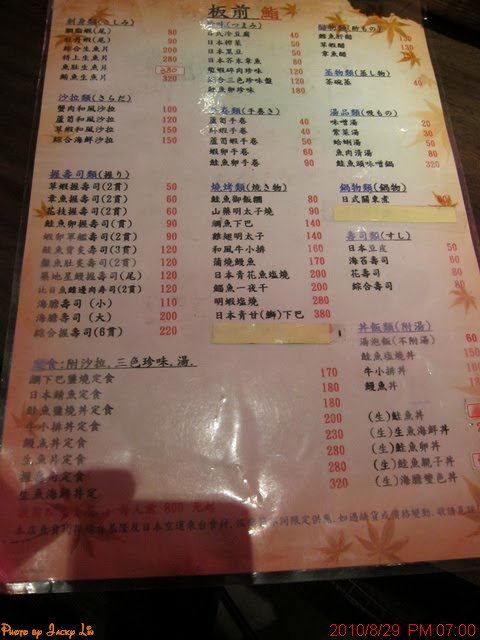 板前 鮨
刺身類(さしみ)
胭脂蝦(尾) 80
牡丹蝦(尾) 90
綜合生魚片 200
特上生魚片 280
魚肚生魚片 380
鮪魚生魚片 320
沙拉類(さらだ)
蟹肉和風沙拉 100
蘆筍和風沙拉 120
草蝦和風沙拉 150
綜合海鮮沙拉 150
握壽司類(握り)
草蝦握壽司(2貫) 50
章魚握壽司(2貫) 60
花技握壽司(2貫) 60
鮭魚卵握(貫) 90
蝦卵軍艦(2貫) 90
鮭魚壹支(3貫) 120
鮭魚肚支(2貫) 120
築地星鰻握壽司(尾) 120
比目魚鰭邊肉壽司(2貫) 120
海膽壽司 (小) 110
海膽壽司 (大) 200
綜合握壽司(6貫) 220
(つまみ)
日式冷豆腐 40
日本毛豆
日本芥末章魚 80
綜合三色珍味盤
手卷類(手巻き)
蘆筍手卷 40
草蝦手卷 40
鮮蝦手卷 50
蝦卵手卷 60
鮭魚卵手卷 90
燒烤類(燒き物)
鮭魚御飯糰 80
山藥明太子燒 90
鯛魚下巴 140
雞翅明太子 140
和風牛小排 160
蒲燒鰻魚 170
日本青花魚塩燒 200
鯔魚一夜干 200
明蝦塩燒 280
日本青甘(鰤)下巴 380
醋物類(酢もの)
鮟魚肝醋 130
草蝦醋
章魚醋
蒸物類(蒸し物)
茶碗蒸 40
湯品類(吸もの)
味噌湯 20
紫菜湯 30
蛤蜊湯 50
魚肉清湯 80
鮭魚頭味噌鍋 320
鍋物類(鍋物)
日式關東煮
壽司類(すし)
日本豆皮 50
海苔壽司 60
花壽司 60
綜合壽司 80
丼飯類(附湯)
湯泡飯(不附湯) 60
鮭魚塩燒丼 150
牛小排丼
鰻魚丼
(生)鮭魚丼
(生)生魚海鮮丼
(生)鮭魚卵丼
(生)鮭魚親子丼
(生)海膽雙色丼
定食:附沙拉,三色珍味,湯.
鯛下巴鹽燒定食 170
日本鯖魚定食 180
鮭魚鹽燒丼定食 180
牛小排丼定食 200
鰻魚丼定食 230
生魚片定食 280
握壽司定食 280
生魚海鮮丼定 320
每人套 800 元起
2010/8/29 PM 07:00
Photo by Jacky Lin